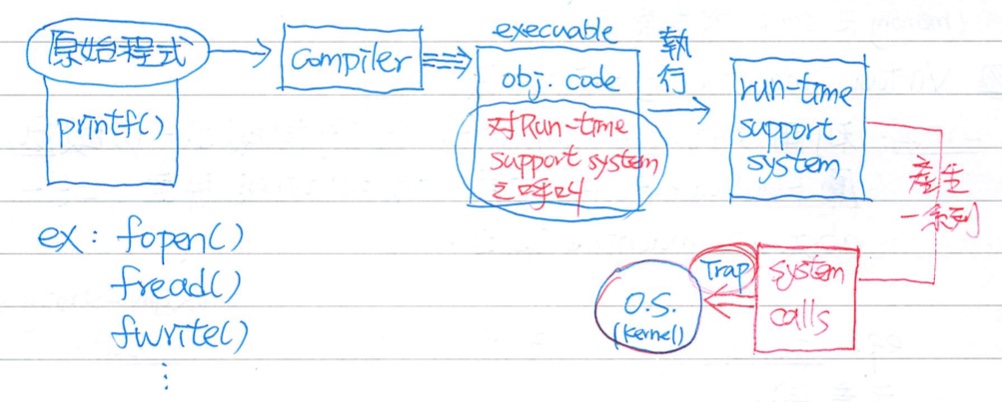 原始程式
printf()
Compiler
execuable
obj. code
对Run-time
support system
之呼叫
執
行
run-time
support
system
產生
一系列
system
calls
Trap
O.S.
(Kernel)
ex: fopen()
fread()
fwrite()
⋮